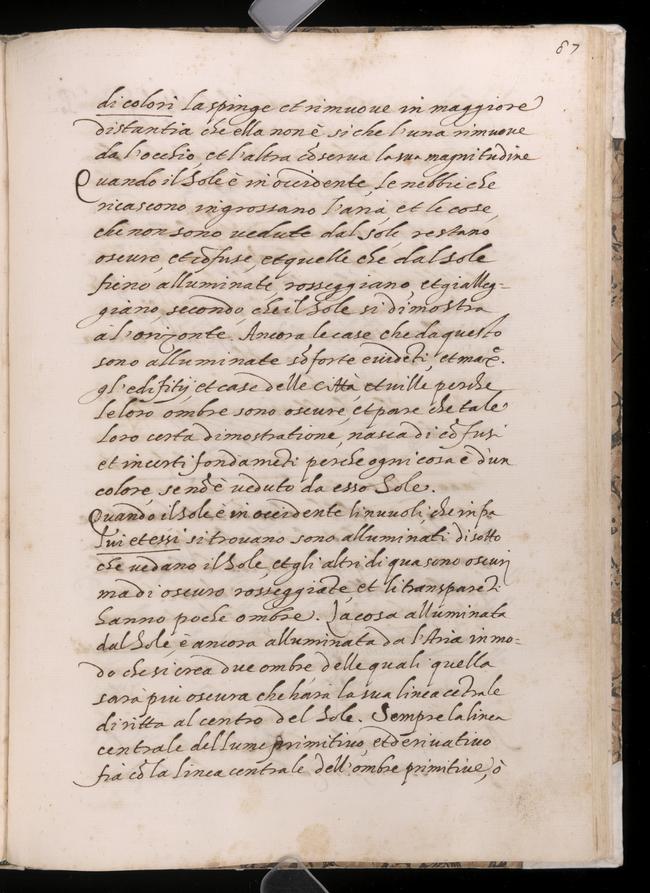 87
di colori la spinge et rimuove in maggiore
distantia che ella non è si che l'una rimuove
da l'occhio, et l'altra cõserva la sua magnitudine
Quando il Sole è in occidente le nebbie che
ricascono ingrossano l'aria, et le cose,
che non sono vedute dal sole restano
oscure, et cõfuse, et quelle che dal sole
fieno alluminate, rosseggiano, et gialleg=
giano, secondo, che il Sole si dimostra
a l'orizonte. Ancora le case che da questo
sono alluminate sõ forte evidẽti, et max.e
gl'edifitij, et case delle città, et ville perche
le loro ombre sono oscure, et pare che tale
loro certa dimostratione, nasca di cõfusi
et incerti fondamẽti perche ogni cosa è d'un
colore, se nõ è veduto da esso Sole.
Quando il Sole è in occidente li nuvoli, che infra
lui et essi si trovano sono alluminati di sotto
che vedano il Sole, et gli altri di qua sono oscuri
ma di oscuro rosseggiate, et li transparẽti
hanno poche ombre. La cosa alluminata
dal Sole è ancora alluminata da l'Aria in mo=
do che si crea due ombre delle quali quella
sara piu oscura che harà la sua linea cẽtrale
diritta al centro del Sole. Sempre la linea
centrale del lume primitivo, et derivativo
fia cõ la linea centrale dell'ombre primitive, ò